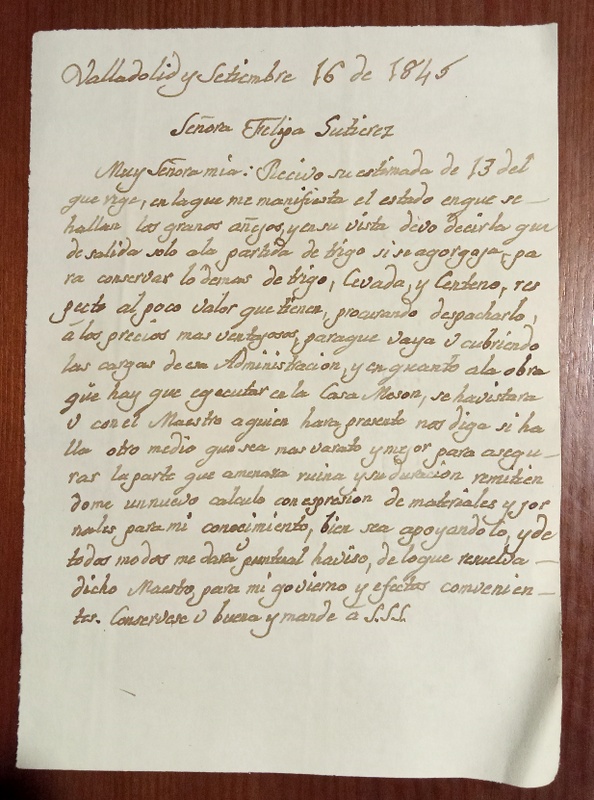 Valladolid y Setiembre 16 de 1845
Señora Felipa Gutierez
Muy Señora mia: Recivo su estimada de 13 del
que rige, en la que me manifiesta el estado en que se
hallan los granos añejos, y en su vista devo decirla que
de salida solo a la partida de trigo si se agorgoja, pa
ra conservar lo demas de trigo, Cevada, y Centeno, res
pecto al poco valor que tienen, procurando despacharlo,
á los precios mas ventajosos, para que vaya V cubriendo
las cargas de esa Administracion, y en quanto a la obra
qüe hay que egecutar en la Casa Meson, se havistara
V con el Maestro a quien hara presente nos diga si ha
lla otro medio que sea mas varato y mejor para asegu-
rar la parte que amenaza ruina y su duracion remitien
dome un nuevo calculo con espresion de materiales y jor
nales para mi conocimiento, bien sea apoyandolo, y de
todos modos me dara V puntual haviso, de lo que resuelva
dicho Maestro, para mi govierno y efectos convenien-
tes. Conservese V buena y mande á S.S.S.